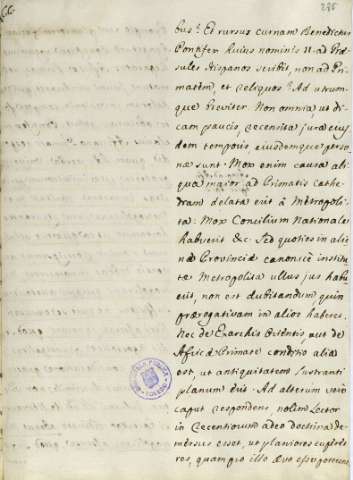 66
235
bus? Et rursus cur nam Benedictus
Pontifex huius nominis II ad Præ-
sules Hispanos scribit, non ad Pri-
matem, et reliquos? Ad utrum-
que breviter. Non omnia, ut di-
cam paucis, recensita jura ejus-
dem temporis, ejusdemque perso-
næ sunt. Mox enim causa ali-
qua maior ad Primatis Cathe-
dram delata erit à Metropoli-
ta: Mox Concilium Nationale
habuerit &c. Sed quoties in ali-
Provinciæ canonicè institu-
tæ Metropolita ullus jus habu-
erit, non est dubitandum quin
prærogativam in alios haberet.
Nec de Exarchis Orientis, aut de
Africæ Primate conditio alia
est, ut antiquitatem lustranti
planum erit. Ad alterum vero
caput respondens, nolim Lector
in recentiorum adeo doctrina de-
mersus esset, ut planiores cuperet
res, quam pro illo ævo